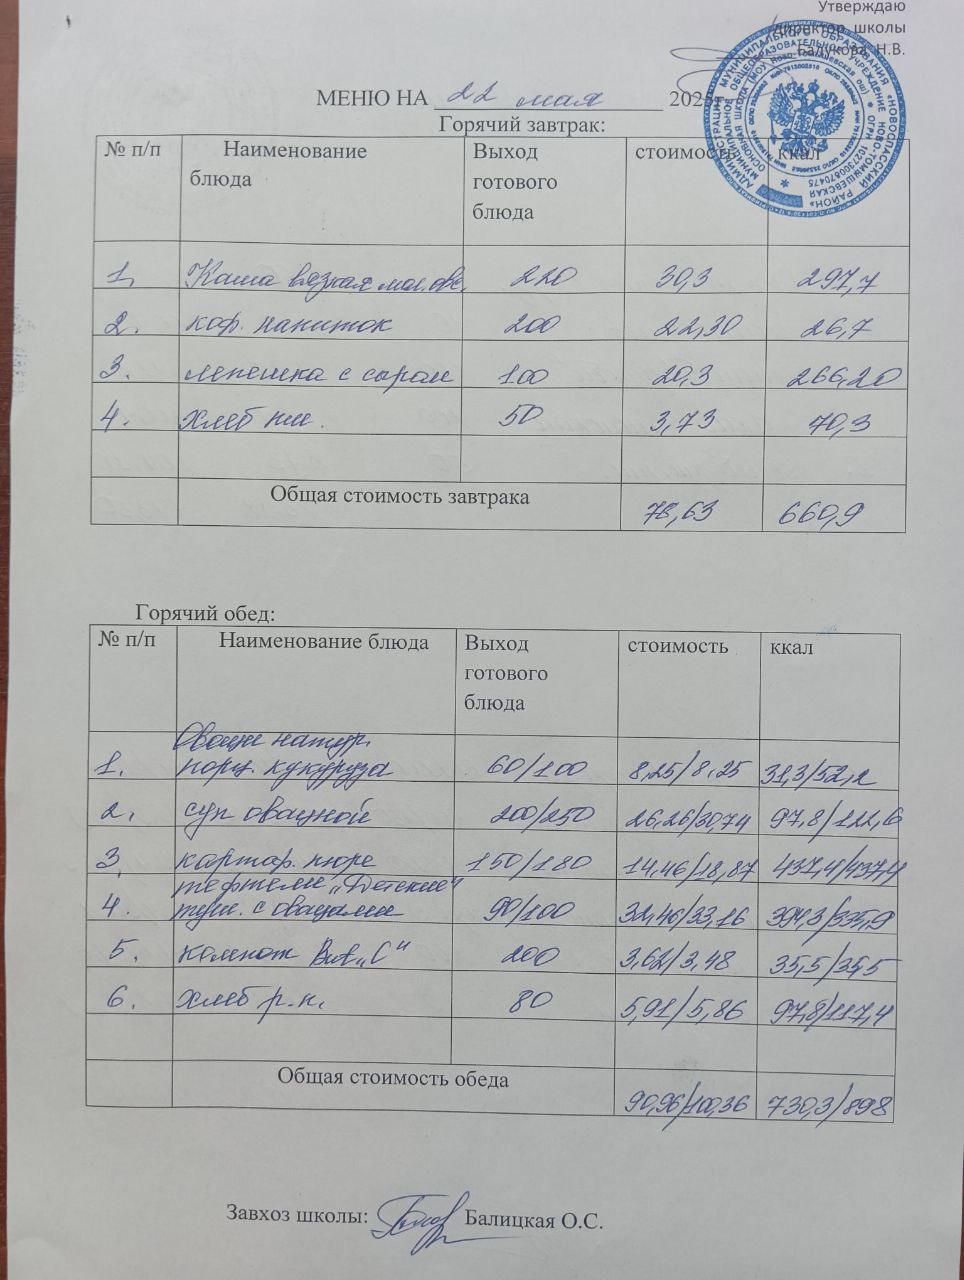 Утверждаю
Директор школы
Балукова Н.В.
МЕНЮ НА 22 мая 2025г
Горячий завтрак:
№ п/п Наименование блюда Выход готового блюда стоимость ккал
1. Каша вязкая мол. овс. 220 30,3 297,7
2. коф. напиток 200 22,30 26,7
3. лепешка с сыром 100 20,3 266,20
4. хлеб пш. 50 3,73 70,3
Общая стоимость завтрака 78,63 660,9
Горячий обед:
№ п/п Наименование блюда Выход готового блюда стоимость ккал
Овощи натур.
1. порц. кукуруза 60/100 8,25/8,25 31,3/52,2
2. суп овощной 200/250 26,26/30,74 97,8/122,6
3. картоф. пюре 150/180 14,46/18,87
тефтели „Детские"
4. туш. с овощами 90/100 32,46/33,16 394,3/335,9
5. компот Вит „С" 200 3,62/3,48 35,5/35,5
6. хлеб р.п. 80 5,91/5,86 97,8/117,4
Общая стоимость обеда 90,96/100,36 730,3/898
Завхоз школы: Балицкая О.С.